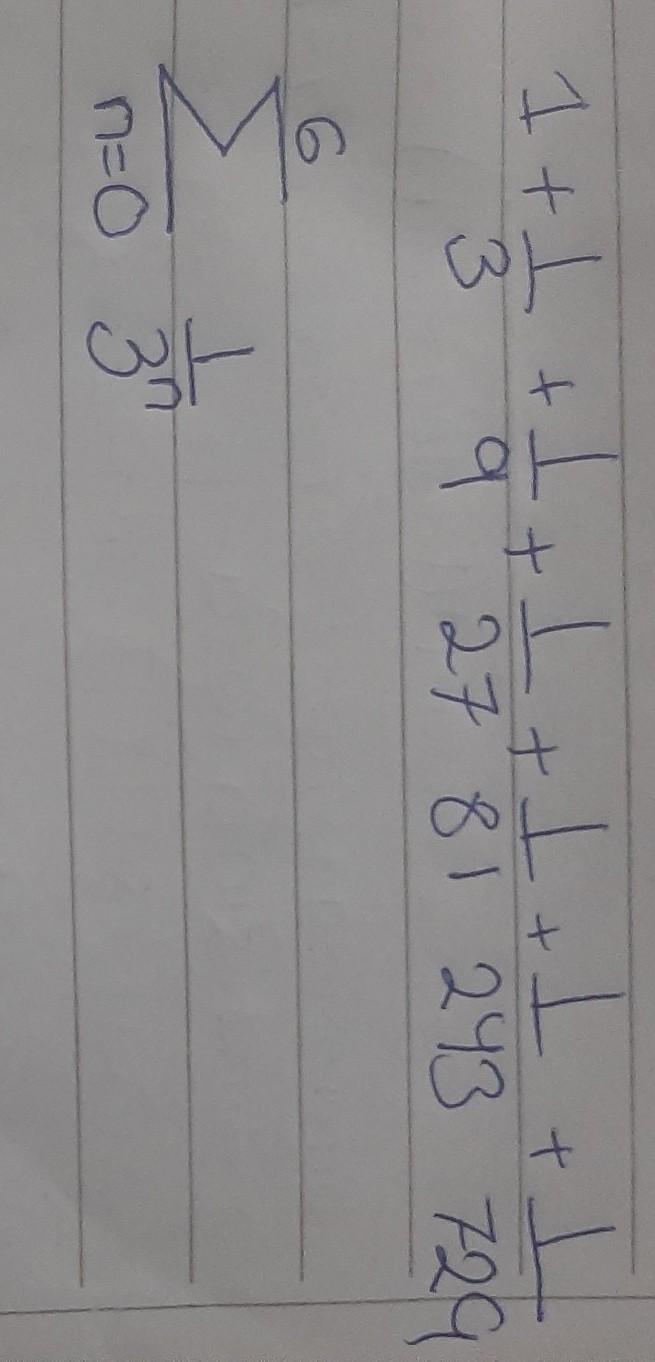 1 + 1/3 + 1/9 + 1/27 + 1/81 + 1/243 + 1/729
6
∑ 1/3ⁿ
n=0